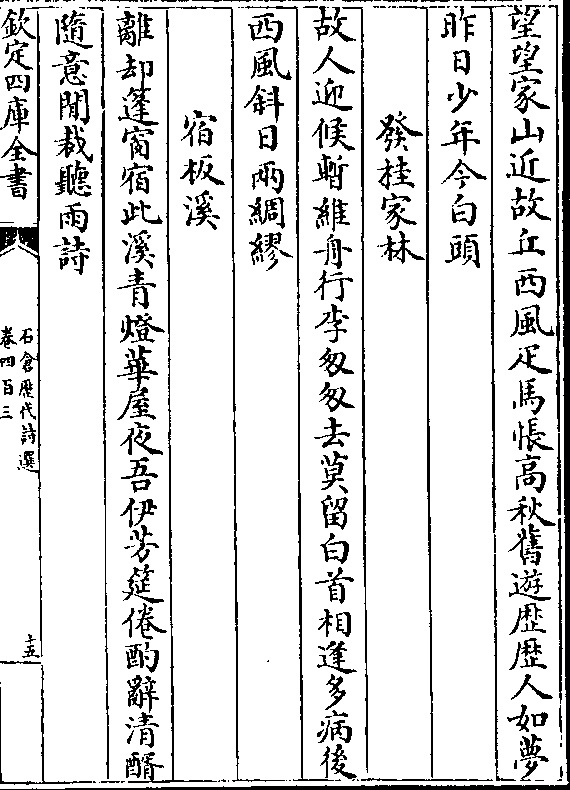 望望家山近故丘西風疋馬悵高秋舊遊歴歴人如夢
昨日少年今白頭
發桂家林
故人迎候暫維舟行李匆匆去莫留白首相逢多病後
西風斜日兩綢繆
宿板溪
離却篷窗宿此溪青燈華屋夜吾伊芳筵倦酌辭清醑
隨意閒裁聽雨詩
欽定四庫全書
石倉歴代詩選
卷四百三
十五